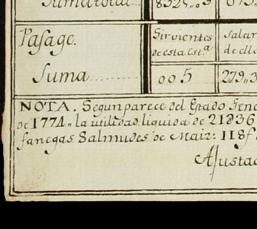 Suma total... 8325,,3
Pasage. Sirvientes Salar
de esta Est.ª de ello
Suma.......... 005 279,3
NOTA. Segun parece del Estado Gene
de 1774. la utilidad liquida de 21936
fanegas 8 almudes de Maiz: 118 f
Ajustad